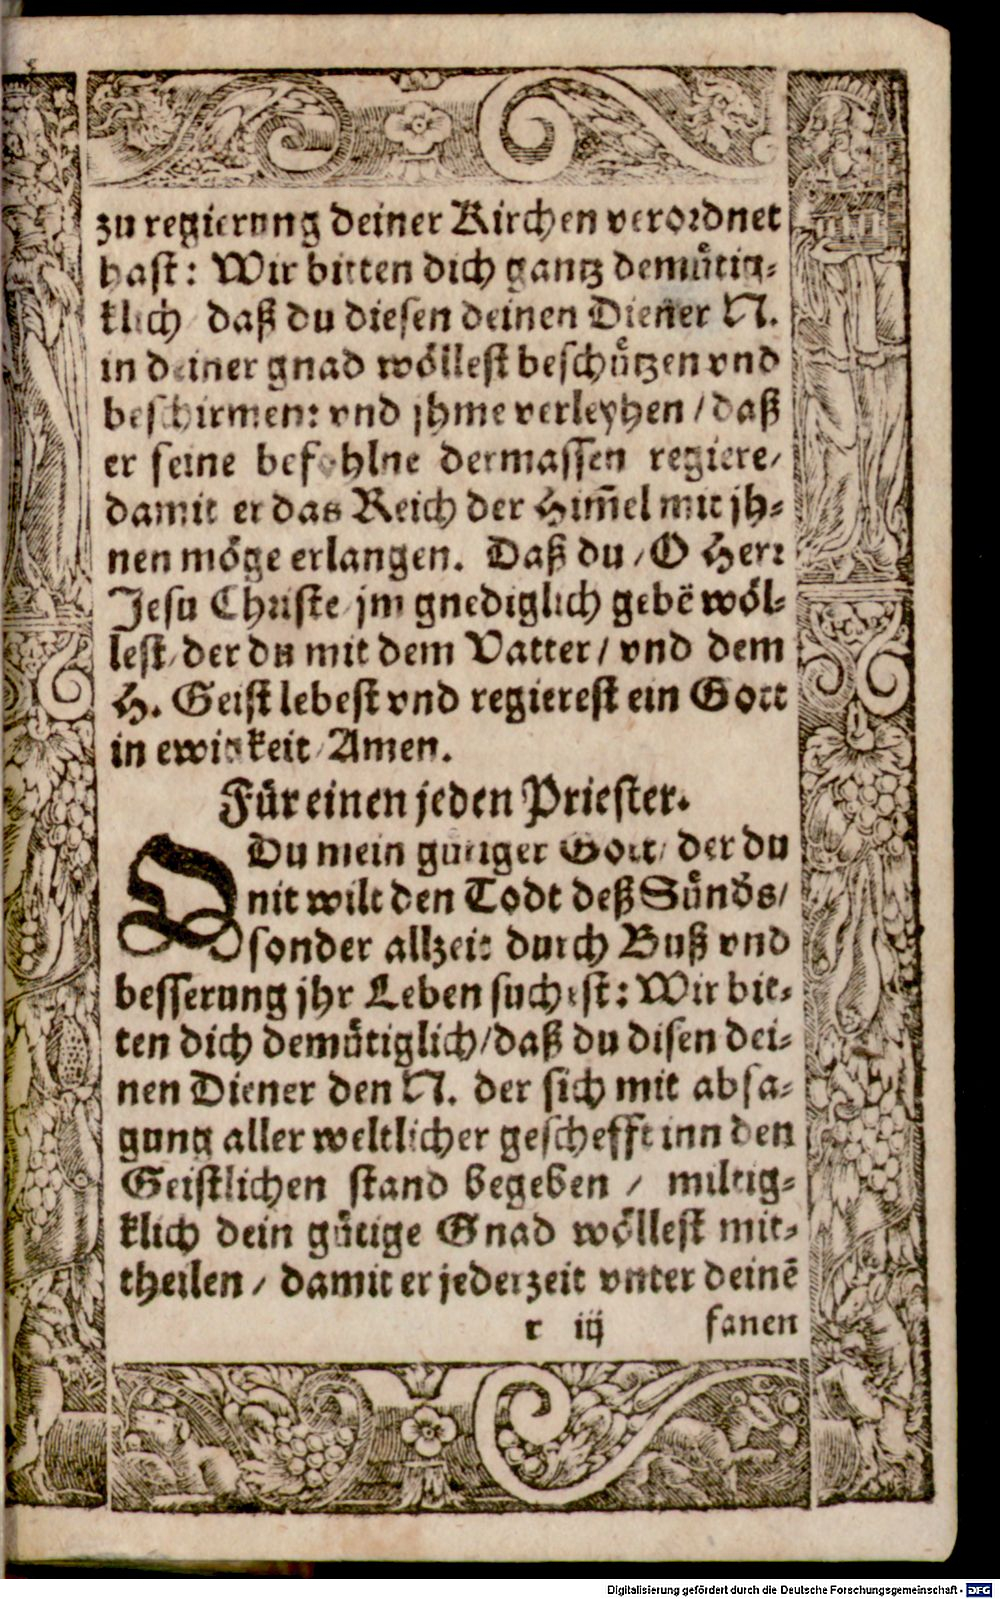 zu regierung deiner Kirchen verordnet
hast: Wir bitten dich gantz demuͤtig-
klich / daß du diesen deinen Diener N.
in deiner gnad woͤllest beschuͤtzen vnd
beschirmen: vnd jhme verleyhen / daß
er seine befohlne dermassen regiere /
damit er das Reich der Him̄el mit jh-
nen moͤge erlangen. Daß du / O Herr
Jesu Christe / jm gnediglich gebē woͤl-
lest / der du mit dem Vatter / vnd dem
H. Geist lebest vnd regierest ein Gott
in ewigkeit / Amen.
Fuͤr einen jeden Priester.
O Du mein guͤtiger Gott / der du
nit wilt den Todt deß Suͤnds /
sonder allzeit durch Buß vnd
besserung jhr Leben suchest: Wir bit-
ten dich demuͤtiglich / daß du disen dei-
nen Diener den N. der sich mit absa-
gung aller weltlicher geschefft inn den
Geistlichen stand begeben / miltig-
klich dein guͤtige Gnad woͤllest mit-
theilen / damit er jederzeit vnter deinē
r iij fanen
Digitalisierung gefördert durch die Deutsche Forschungsgemeinschaft - DFG